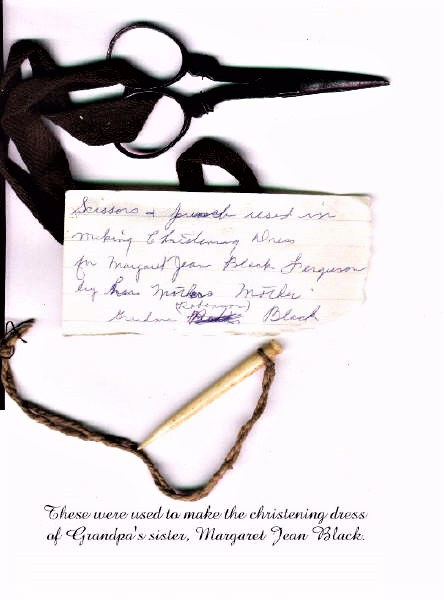 Scissors & punch used in
making Christening Dress
for Margaret Jean Black Ferguson
by her Mothers Mother
(Robinson)
Black
These were used to make the christening dress
of Grandpa's sister, Margaret Jean Black.